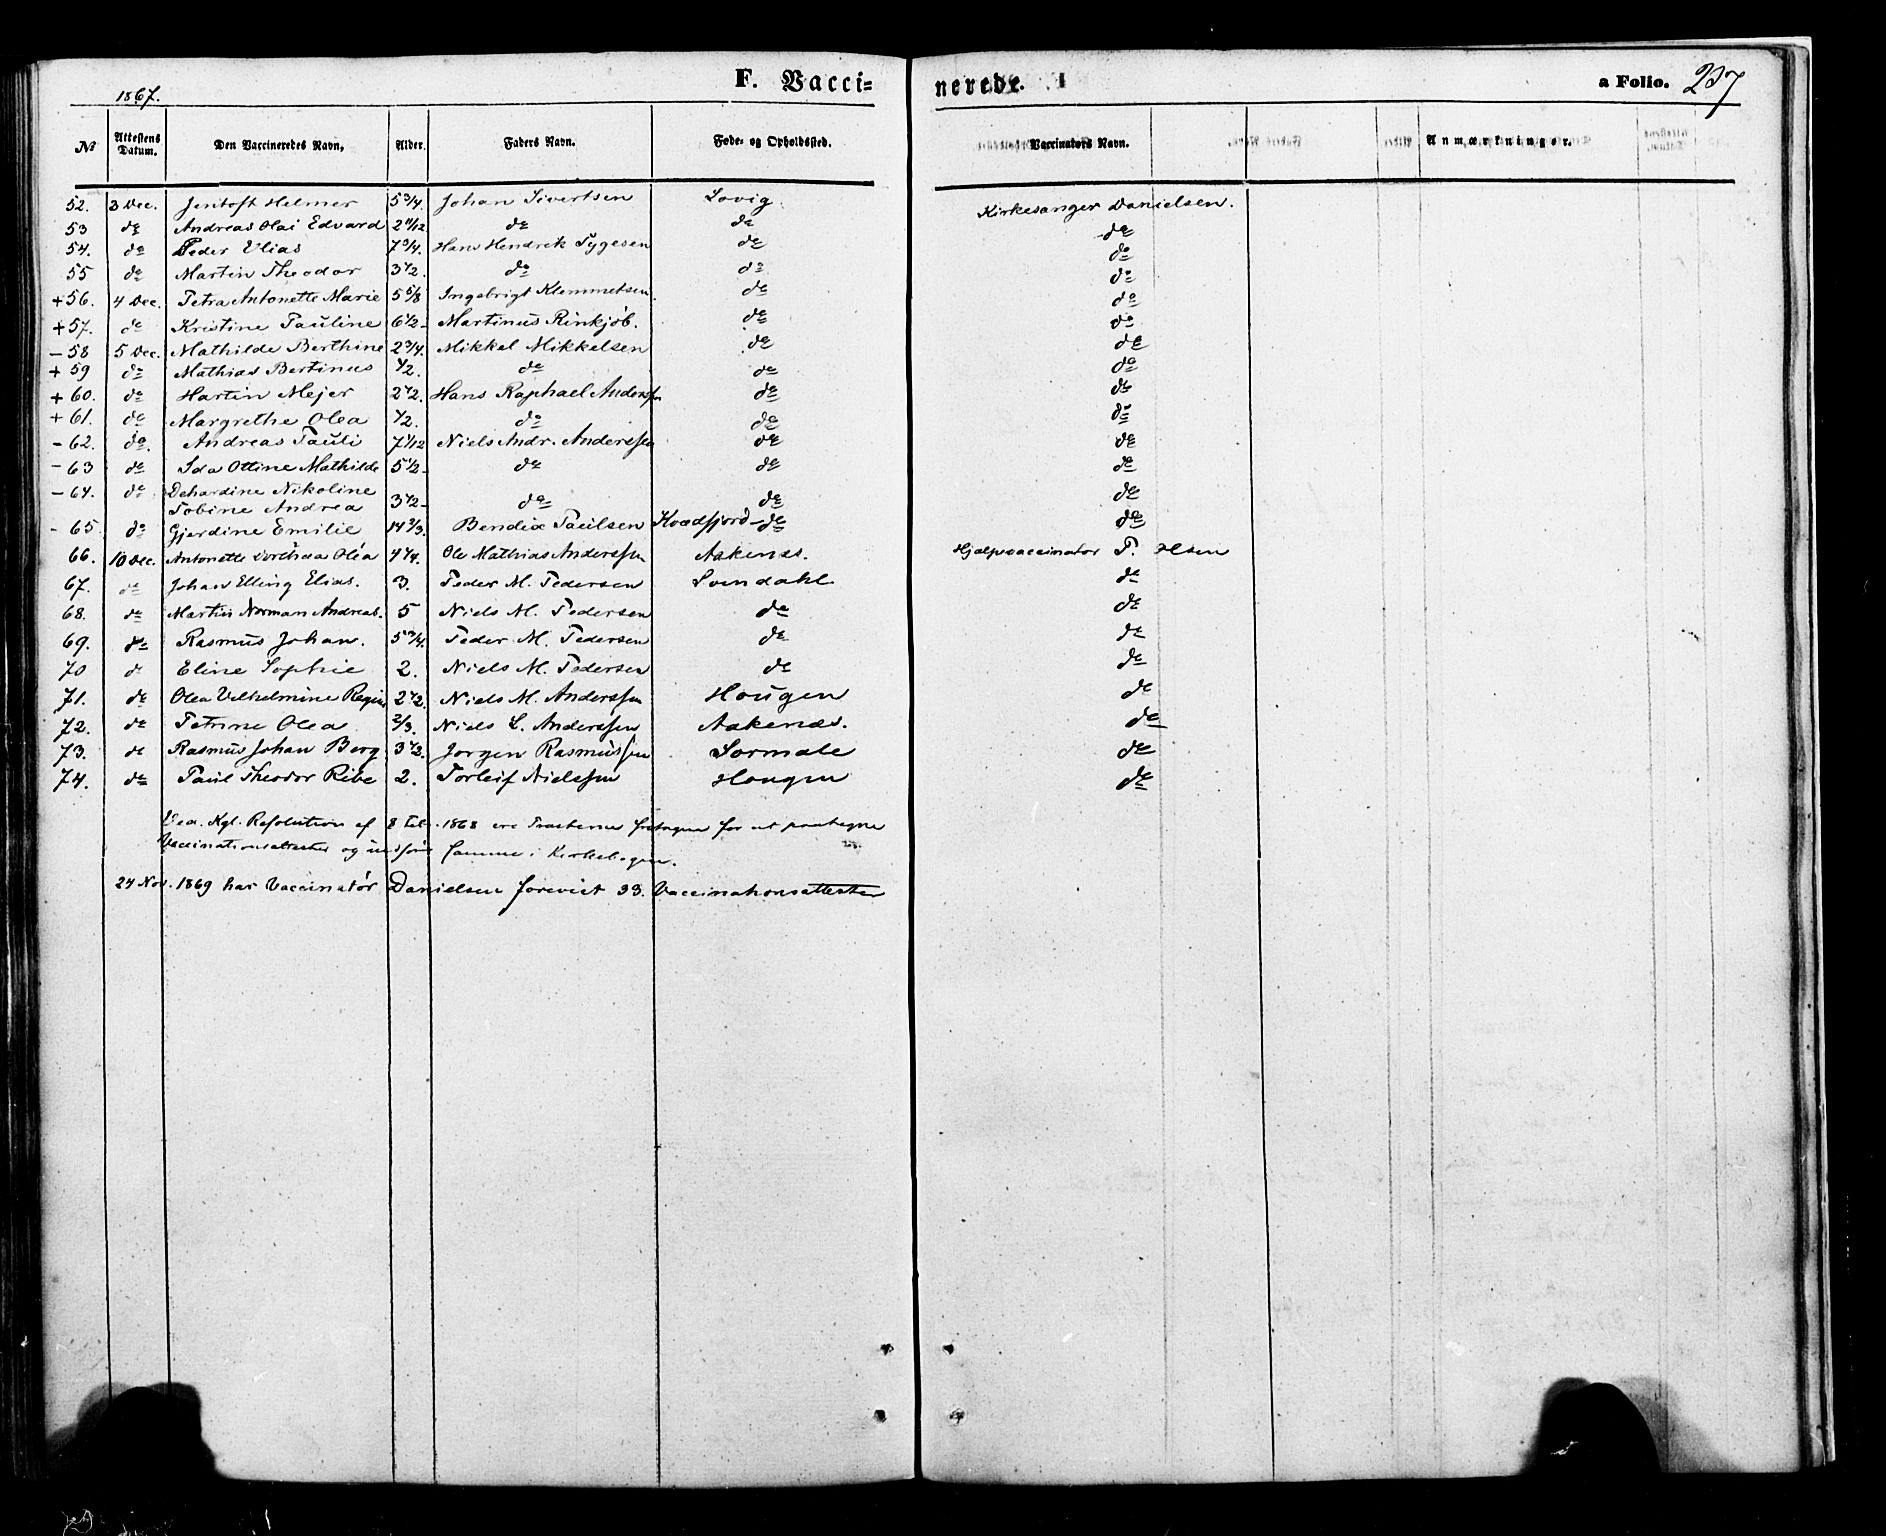 1867. F. Vacci= nerede. a Folio. 237
No Attestens Datum. Den Vaccineredes Navn, Alder. Faders Navn. Føde- og Opholdssted. Vaccinators Navn. Anmærkninger.
52. 3 Dec. Jentoft Helmer 5 3/4. Johan Sivertsen Lovig Kirkesanger Danielsen.
53 do Andreas Olai Edvard 2 11/12 do do do
54. do Peder Elias 7 3/4. Hans Hendrik Tygesen do do
55 do Martin Theodor 3 1/2. do do do
+56. 4 Dec. Petra Antonette Marie 5 5/8 Ingebrigt Klemmetsen. do do
+57. do Kristine Pauline 6 1/2 Martinus Rinkjöb. do do
-58 5 Dec. Mathilde Berthine 2 3/4. Mikkel Mikkelsen do do
+59 do Mathias Bertinus 1/2. do do do
+60. do Martin Mejer 2 1/2. Hans Raphael Anderssen do do
+61. do Margrethe Olea 1/2. do do do
-62. do. Andreas Pauli 7 1/12 Niels Andr. Anderssen do do
-63 do Ida Ottine Mathilde 5 1/2 do do do
-64. do Dehardine Nikoline
Tobine Andrea 3 1/2 do do do
-65 do Gjerdine Emilie 14 2/3. Bendix Paulsen Kvædfjord - do do
66. 10 Dec. Antonette Dorthea Olea 4 1/4. Ole Mathias Anderssen Aakenes. Hjælpevaccinator P. Olsen
67. do Johan Elling Elias. 3. Peder M. Pedersen Svendahl do
68. do Martin Norman Andreas. 5 Niels M. Pedersen do do
69. do Rasmus Johan. 5 3/4. Peder M. Pedersen do do
70 do Eline Sophie 2. Niels M. Pedersen do do
71. do Olea Vilhelmine Regine 2 1/2. Niels M. Anderssen Hougen do
72. do Petrine Olea 2/3. Niels L. Anderssen Aakenæs. do
73. do Rasmus Johan Berg 3 1/2. Jorgen Rasmussen Sormale do
74. do Paul Theodor Ribe 2. Torleif Nielssen Hougen do
Ved Kgl. Resolution af 8 Feb. 1868 ere Præsterne fritagne for at paategne
Vaccinationsattester og indføre samme i Kirkebogen.
24 Nov. 1869 har Vaccinatör Danielsen foreviist 33. Vaccinationsattester